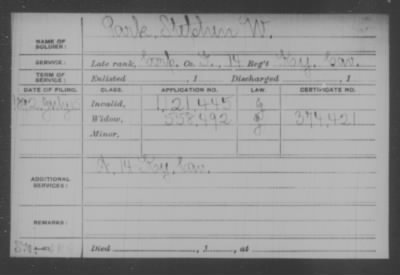 NAME OF SOLDIER: Park, Stephen W.
SERVICE: Late rank, Corp. Co. F., 14 Reg't Ky. Cav.
TERM OF SERVICE: Enlisted , 1 Discharged , 1
DATE OF FILING. CLASS. APPLICATION NO. LAW. CERTIFICATE NO.
July Invalid, 1,121,445 g
Widow, 558,492 g 374,421
Minor,
ADDITIONAL SERVICES: A, 14 Ky. Cav.
REMARKS:
Died , 1 , at